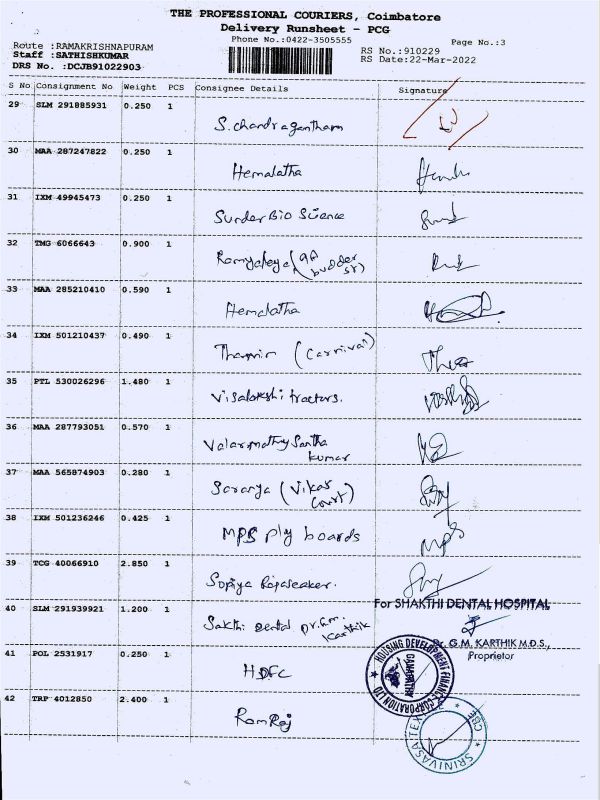 THE PROFESSIONAL COURIERS, Coimbatore
Delivery Runsheet - PCG
Phone No.:0422-3505555 Page No.:3
Route :RAMAKRISHNAPURAM RS No.:910229
Staff :SATHISHKUMAR RS Date:22-Mar-2022
DRS No. :DCJB91022903
S No Consignment No Weight PCS Consignee Details Signature
29 SLM 291885931 0.250 1
S.chandragantham
30 MAA 287247822 0.250 1
Hemalatha
31 IXM 49945473 0.250 1
Sunder Bio Science
32 TMG 6066643 0.900 1
33 MAA 285210410 0.590 1
Hemalatha
34 IXM 501210437 0.490 1
(Carnival)
35 PTL 530026296 1.480 1
Visalakshi tractors.
36 MAA 287793051 0.570 1
kumar
37 MAA 565874903 0.280 1
Saranya (Vikas
Court)
38 IXM 501236246 0.425 1
MPS ply boards MPS
39 TCG 40066910 2.850 1
For SHAKTHI DENTAL HOSPITAL
40 SLM 291939921 1.200 1
Sakthi Dental Dr.G.M.
Karthik
Dr. G.M. KARTHIK M.D.S.,
Proprietor
41 POL 2531917 0.250 1
HDFC
HOUSING DEVELOPMENT FINANCE CORPORATION LTD
GANAPATHY
42 TRP 4012850 2.400 1
RamRaj
SRINIVASA TEX
CBE